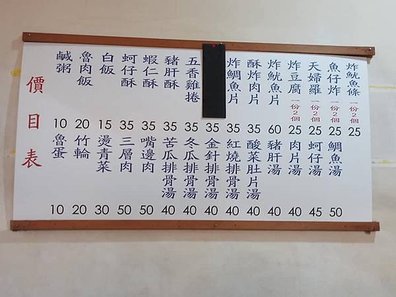 價目表
鹹粥
10
魯肉飯
20
白飯
15
蚵仔酥
35
蝦仁酥
35
豬肝酥
35
五香雞捲
35
35
炸鯛魚片
35
酥炸肉片
35
炸魷魚片
60
炸豆腐
一份2個
25
天婦羅
一份2個
25
魚仔炸
一份2個
25
炸魷魚條
25
魯蛋
10
竹輪
20
燙青菜
30
三層肉
50
嘴邊肉
50
苦瓜排骨湯
40
冬瓜排骨湯
40
金針排骨湯
40
紅燒排骨湯
40
酸菜肚片湯
40
豬肝湯
40
肉片湯
40
蚵仔湯
45
鯛魚湯
50